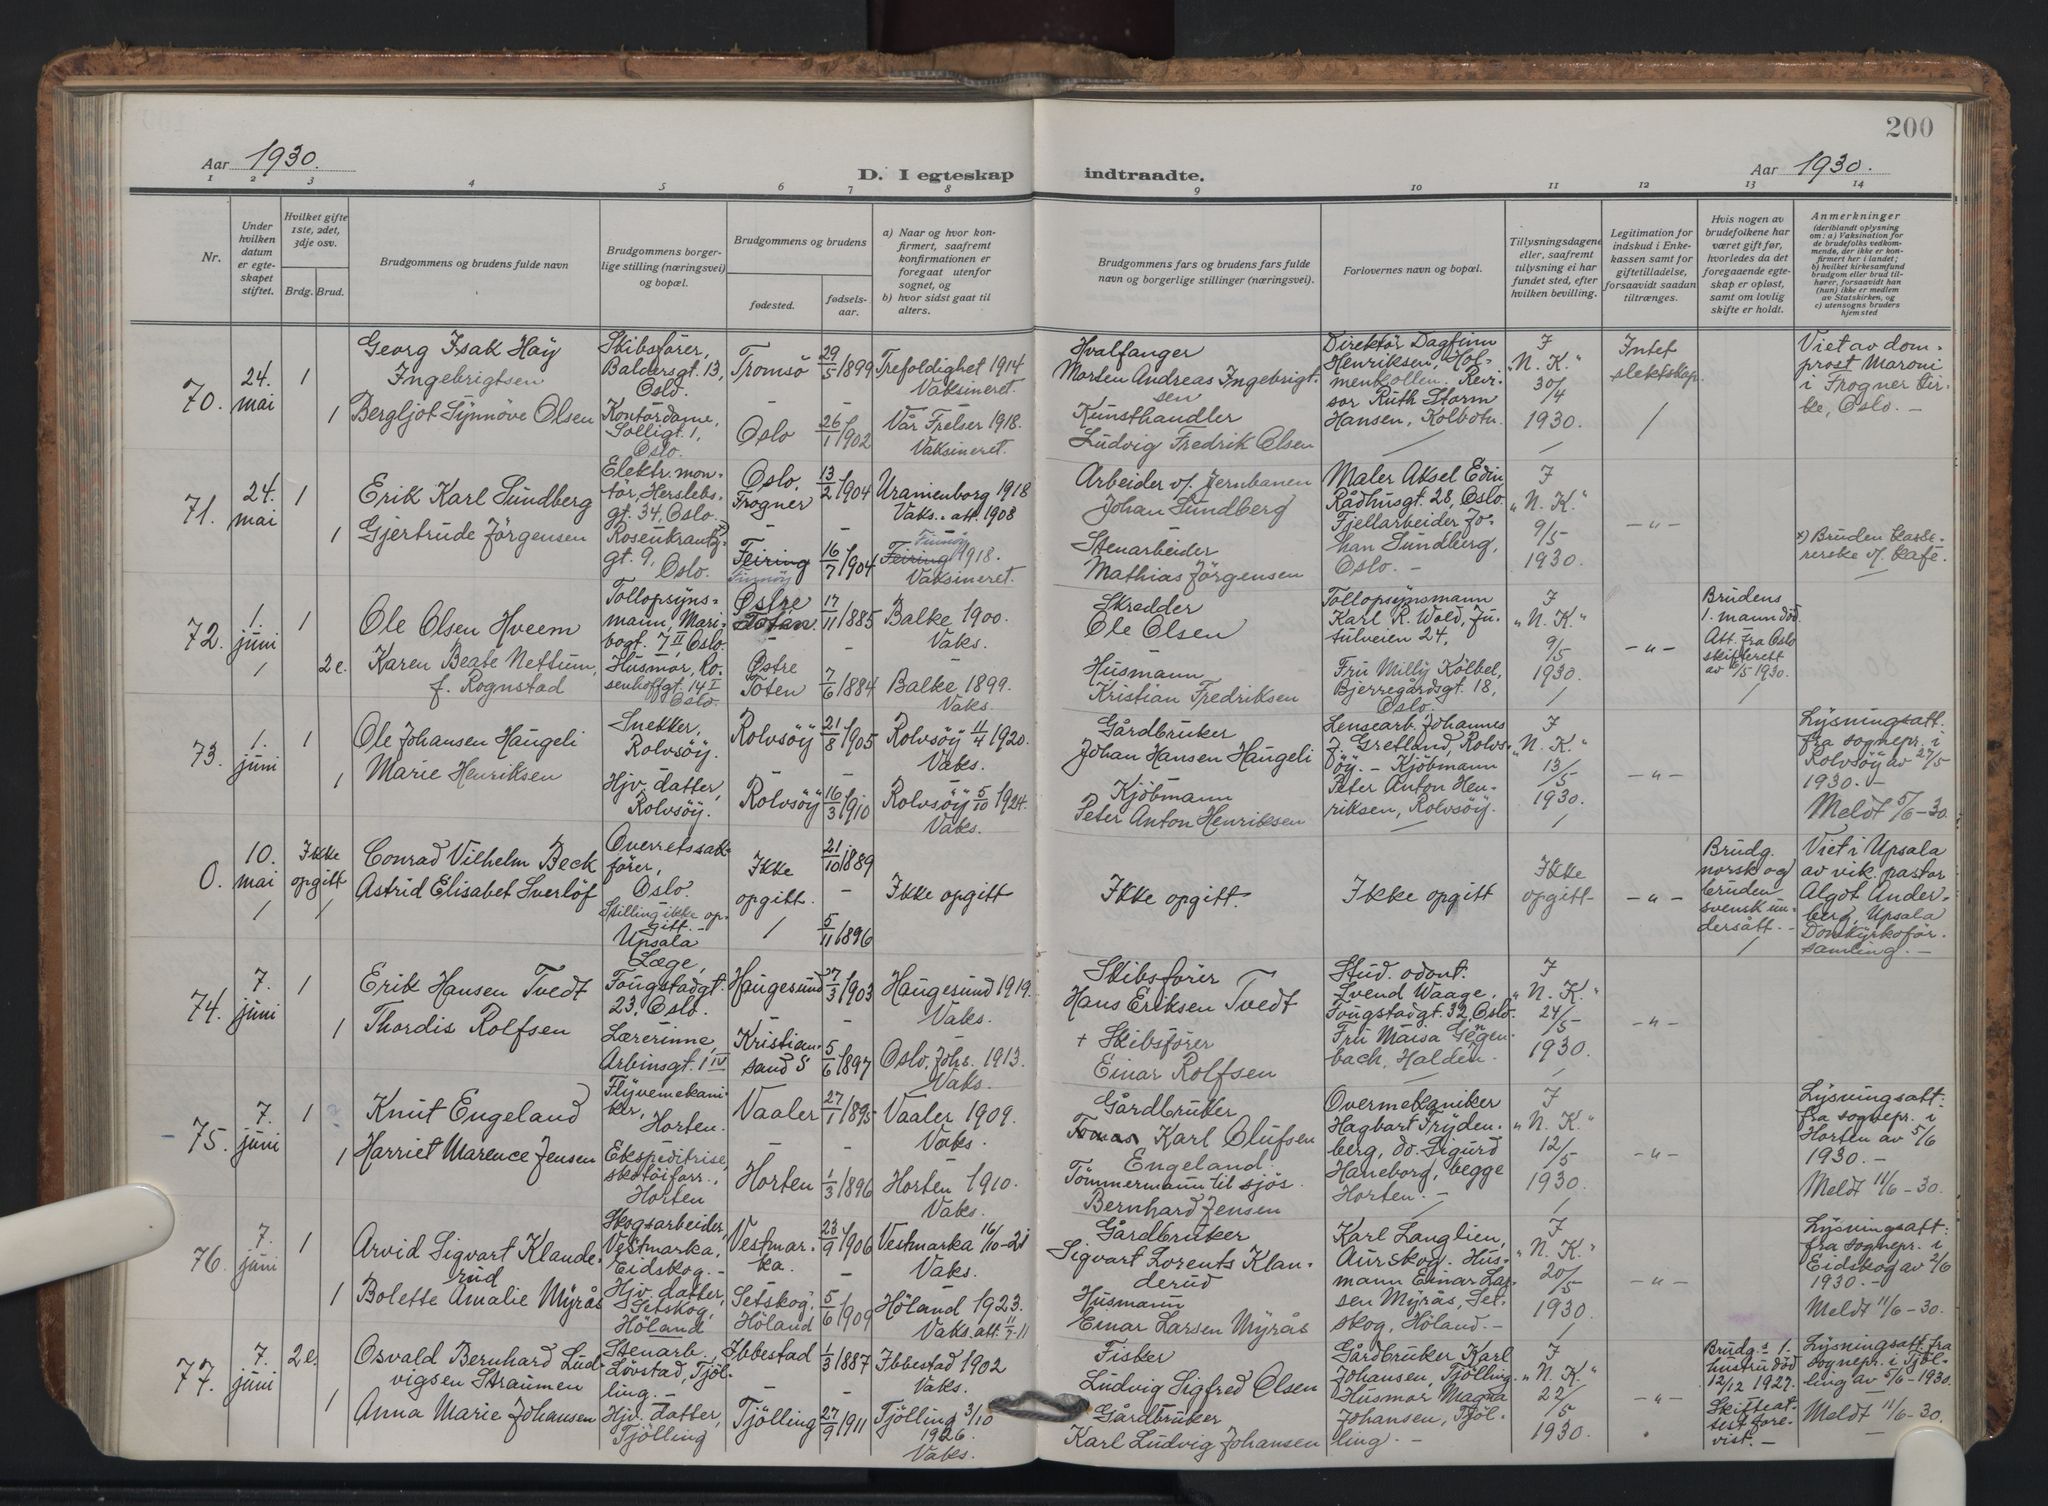 200
Aar 1930.
D. I egteskap indtraadte.
Aar 1930.
1 2 3 4 5 6 7 8 9 10 11 12 13 14
Nr.
Under hvilken datum er egteskapet stiftet.
Hvilket gifte 1ste, 2det, 3dje osv.
Brdg. Brud.
Brudgommens og brudens fulde navn
Brudgommens borgerlige stilling (næringsvei) og bopæl.
Brudgommens og brudens
fødested.
fødselsaar.
a) Naar og hvor konfirmert, saafremt konfirmationen er foregaat utenfor sognet, og
b) hvor sidst gaat til alters.
Brudgommens fars og brudens fars fulde navn og borgerlige stillinger (næringsvei).
Forlovernes navn og bopæl.
Tillysningsdagene eller, saafremt tillysning ei har fundet sted, efter hvilken bevilling.
Legitimation for indskud i Enkekassen samt for giftetilladelse, forsaavidt saadan tiltrænges.
Hvis nogen av brudefolkene har været gift før, hvorledes da det foregaaende egteskap er opløst, samt om lovlig skifte er holdt.
Anmerkninger (deriblandt oplysning om: a) Vaksination for de brudefolks vedkommende, der ikke er konfirmert her i landet; b) hvilket kirkesamfund brudgom eller brud tilhører, forsaavidt han (hun) ikke er medlem av Statskirken, og c) utensogns bruders hjemsted
70.
24. mai
1
Georg Isak Høy Ingebrigtsen
Skibsfører, Baldersgt. 13, Oslo.
Tromsö
29/5 1899
Trefoldighet 1914 Vaksineret.
Hvalfanger Morten Andreas Ingebrigtsen
Direktör Dagfinn Henriksen, Holmenkollen. Revisor Ruth Storm Hansen, Kolbotn.
I "N. K." 30/4 1930.
Intet slektskap.
Viet av domprost Maroni i Frogner kirke, Oslo. -
1
Bergljot Synnöve Olsen
Kontordame, Solligt. 1, Oslo.
Oslo
26/1 1902
Vår Frelser 1918. Vaksineret.
Kunsthandler Ludvig Fredrik Olsen
71.
24. mai
1
Erik Karl Sundberg
Elektr. montör, Herslebsgt. 34, Oslo.
Oslo. Frogner
13/2 1904
Uranienborg 1918 Vaks. att. 1908
Arbeider v/ Jernbanen Johan Sundberg
Maler Aksel Edin Rådhusgt. 28, Oslo. Fjellarbeider Johan Sundberg, Oslo. -
I "N. K." 9/5 1930.
- " -
x) Bruden kassererske v/ kafé.
1
Gjertrude Jörgensen
Rosenkrantzgt. 9, Oslo.
Feiring Finnöy
16/7 1904
Finnöy Feiring 1918. Vaksineret.
Stenarbeider Mathias Jörgensen
72.
1. juni
1
Ole Olsen Hveem
Tollopsynsmann, Maribogt. 7 II Oslo.
Østre Toten.
17/11 1885
Balke 1900. Vaks.
Skredder Ole Olsen
Tollopsynsmann Karl R. Wold, Jutulveien 24, Fru Milly Kölbel, Bjerregårdsgt. 18, Oslo.
I "N. K." 9/5 1930.
- " -
Brudens 1. mann död. Att. fra Oslo skifterett av 6/5 1930.
2e.
Karen Beate Nettum, f. Rognstad
Husmor, Rosenhoffgt. 14 I Oslo.
Østre Toten
7/6 1884
Balke 1899. Vaks.
Husmann Kristian Fredriksen
73.
1. juni
1
Ole Johansen Haugeli
Snekker, Rolvsöy.
Rolvsöy
21/8 1905
Rolvsöy 11/4 1920. Vaks.
Gårdbruker Johan Hansen Haugeli
Lensearb. Johannes J. Gretland, Rolvsöy. - Kjöbmann Peter Anton Henriksen, Rolvsöy.
I "N. K." 13/5 1930.
- " -
Lysningsatt. fra sognepr. i Rolvsöy av 27/5 1930. - Meldt 5/6-30.
1
Marie Henriksen
Hjv. datter, Rolvsöy.
Rolvsöy
16/3 1910
Rolvsöy 5/10 1924. Vaks.
Kjöbmann Peter Anton Henriksen
0.
10. mai
Ikke opgitt
Conrad Vilhelm Beck
Overretssakförer, Oslo
Ikke opgitt.
21/10 1889
Ikke opgitt
Ikke opgitt.
Ikke opgitt
Ikke opgitt
- " -
Brudg. norsk og bruden svensk undersått. -
Viet i Upsala av vik. pastor Algot Anderberg, Upsala Domkyrkoförsamling. -
Astrid Elisabet Sverlöf
Stilling ikke opgitt. - Upsala
5/11 1896
74.
7. juni
1
Erik Hansen Tvedt
Læge, Fougstadgt. 23, Oslo.
Haugesund
27/3 1903
Haugesund 1919. Vaks.
Skibsförer Hans Eriksen Tvedt
Stud. odont. Svend Waage, Fougstadgt. 32, Oslo. Fru Maisa Gegenbach, Halden.
I "N. K." 24/5 1930.
- " -
1
Thordis Rolfsen
Lærerinne, Arbinsgt. 1 IV
Kristiansand S
5/6 1897
Oslo, Johs. 1913. Vaks.
+ Skibsförer Einar Rolfsen
75.
7. juni
1
Knut Engeland
Flyvemekaniker, Horten.
Vaaler
27/1 1895
Vaaler 1909. Vaks.
Gårdbruker Tomas Karl Olufsen Engeland.
Overmekaniker Hagbart Frydenberg, do. Sigurd Haneborg, begge Horten. -
I "N. K." 12/5 1930.
- " -
Lysningsatt. fra sognepr. i Horten av 5/6 1930. - Meldt 11/6-30.
1
Harriet Marence Jensen
Ekspeditrise, skotöiforr., Horten
Horten
1/3 1896
Horten 1910. Vaks.
Tömmermann til sjös Bernhard Jensen
76.
7. juni
1
Arvid Sigvart Klanderud
Skogsarbeider, Vestmarka, Eidskog. -
Vestmarka.
23/9 1906
Vestmarka 16/10-21 Vaks.
Gårdbruker Sigvart Lorents Klanderud
Karl Langlien, Aurskog. Husmann Einar Larsen Myrås, Setskog, Höland. -
I "N. K." 20/5 1930.
- " -
Lysningsatt. fra sognepr. i Eidskog av 2/6 1930. - Meldt 11/6-30.
1
Bolette Amalie Myrås
Hjv. datter, Setskog, Höland
Setskog, Höland
5/6 1909
Höland 1923. Vaks. att. 11/7-11
Husmann Einar Larsen Myrås
77.
7. juni
2e.
Osvald Bernhard Ludvigsen Straumen
Stenarb., Lövstad, Tjölling. -
Ibbestad
1/3 1887
Ibbestad 1902 Vaks.
Fisker Ludvig Sigfred Olsen
Gårdbruker Karl Johansen, Tjölling. Husmor Magna Johansen, Tjölling. -
I "N. K." 22/5 1930.
- " -
Brudg.s 1. hustru död 12/12 1927. Skifteattest forevist. -
Lysningsatt. fra sognepr. i Tjölling av 5/6-1930. Meldt 11/6-30.
1
Anna Marie Johansen
Hjv. datter, Tjölling
Tjölling
27/9 1911
Tjölling 3/10 1926. Vaks.
Gårdbruker Karl Ludvig Johansen